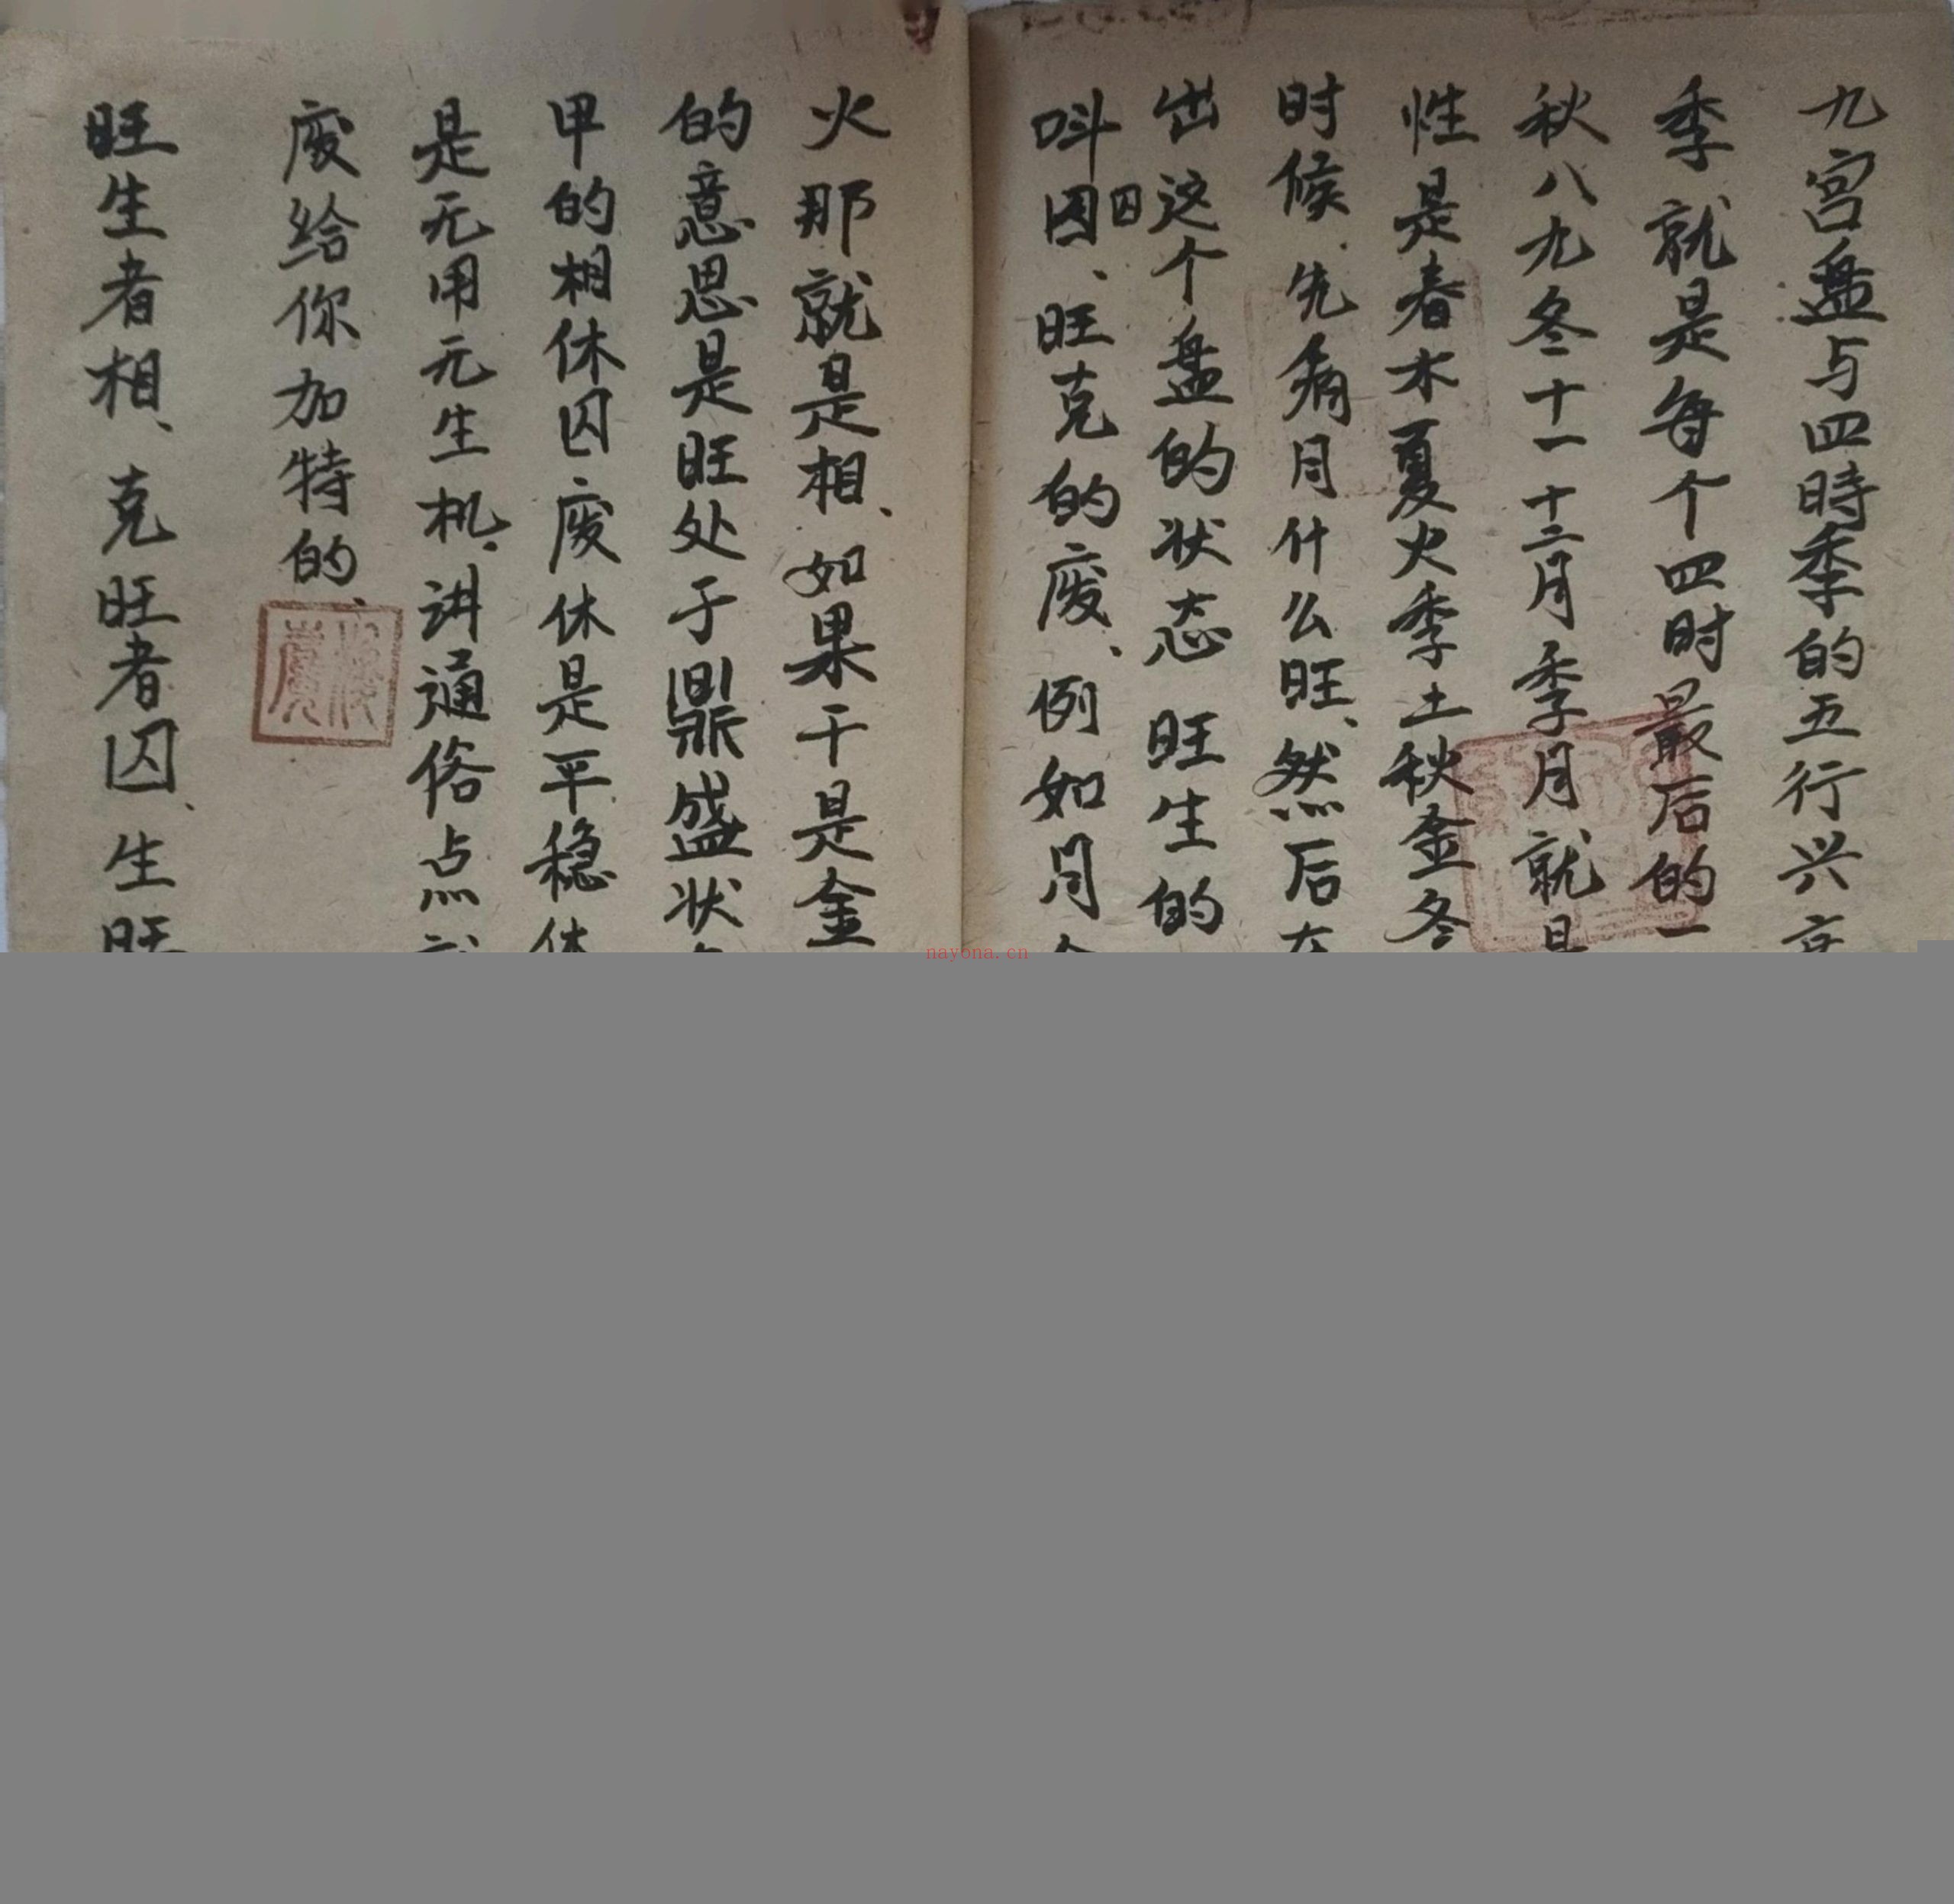 九宫盘与四時季的五行兴
季就是每个四时最后的一
秋八九冬十一十二月季月就是
性是春木夏火季土秋金冬
时候.先看月什么旺、然后在
出这个盘的状态旺生的
叫囚、旺克的废、例如月
囚
火那就是相、如果干是金
的意思是旺处于鼎盛状
甲的相休囚废休是平稳休
是无用无生机、讲通俗点就
废给你加特的、
旺生者相、克旺者囚、生旺
nayona.cn